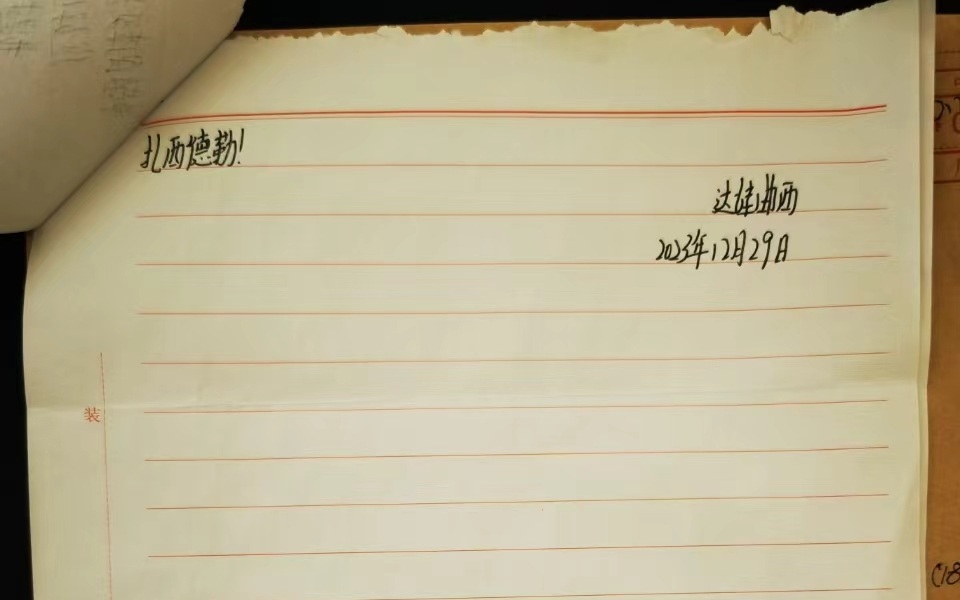 扎西德勒!
达娃曲西
2023年12月29日
装
(18